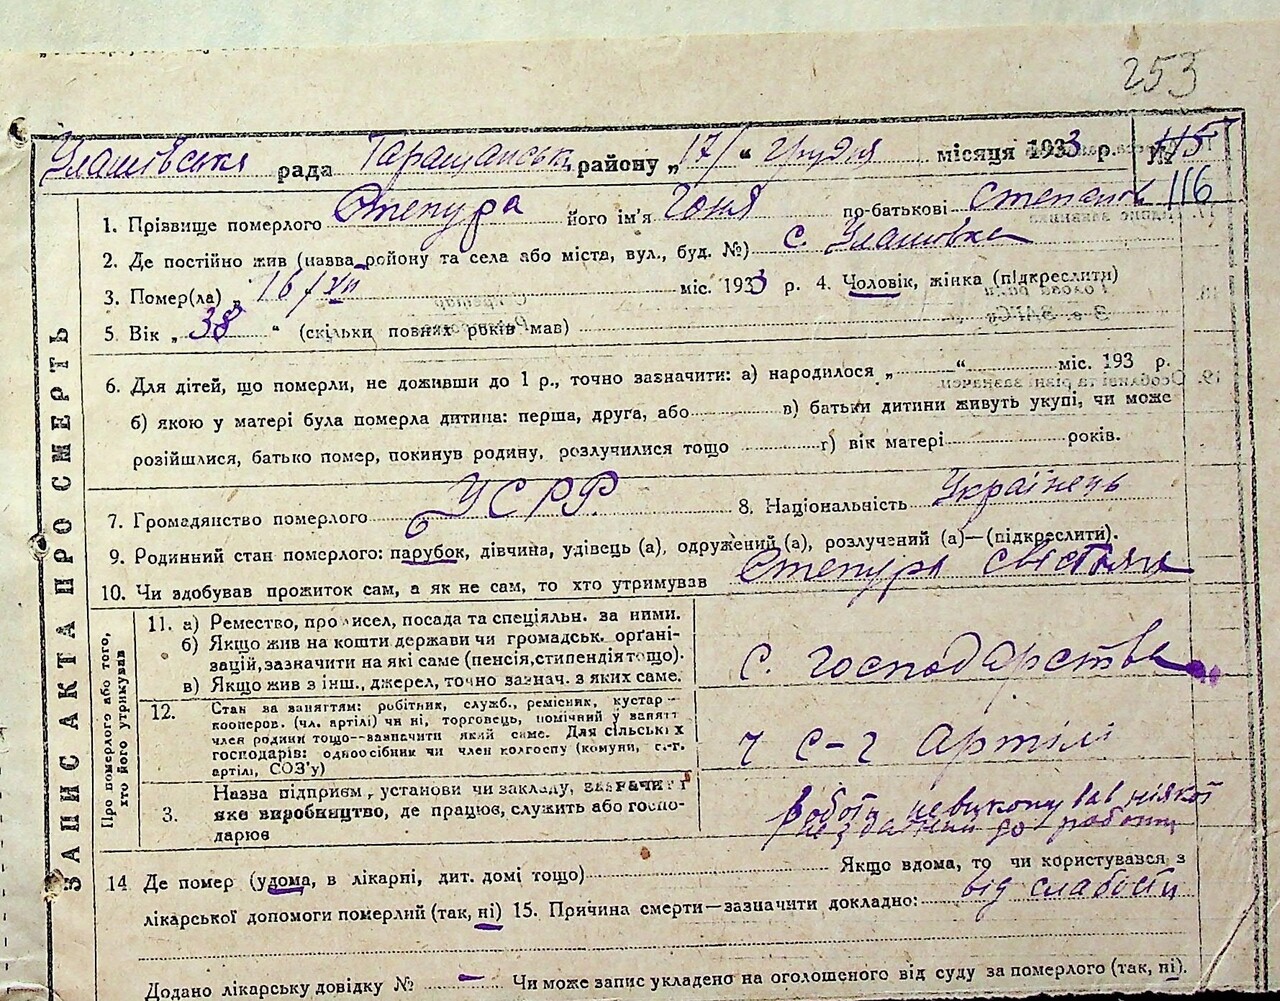 253
Улашівська рада Таращанськ. району „17/“ грудня місяця 1933 р. № 115
116
1. Прізвище померлого Степура його ім'я по-батькові Степанов
2. Де постійно жив (назва району та села або міста, вул., буд. №) с. Улашовка
3. Помер(ла) в 16/VII міс. 1933 р. 4. Чоловік, жінка (підкреслити)
5. Вік „38“ (скільки повних років мав)
6. Для дітей, що померли, не доживши до 1 р., точно зазначити: а) народилося „ “ міс. 193 р.
б) якою у матері була померла дитина: перша, друга, або в) батьки дитини живуть укупі, чи може
розійшлися, батько помер, покинув родину, розлучилися тощо г) вік матері років.
7. Громадянство померлого УСРР. 8. Національність Українець
9. Родинний стан померлого: парубок, дівчина, удівець (а), одружений (а), розлучений (а)—(підкреслити).
10. Чи здобував прожиток сам, а як не сам, то хто утримував Степура
ЗАПИС АКТА ПРО СМЕРТЬ
Про померлого або того,
хто його утримував
11. а) Ремество, промисел, посада та спеціяльн. за ними.
б) Якщо жив на кошти держави чи громадськ. орґані-
зацій, зазначити на які саме (пенсія, стипендія тощо).
в) Якщо жив з інш., джерел, точно зазнач. з яких саме.
с. господарства
12. Стан за заняттям: робітник, служб., ремісник, кустар-
кооперов. (чл. артілі) чи ні, торговець, помічний у занятт
член родини тощо—зазначити який саме. Для сільських
господарів: одноосібник чи член колгоспу (комуни, с.-г.
артілі, СОЗ'у)
ч с-г артілі
3. Назва підприєм , установи чи закладу, зазначит
яке виробництво, де працює, служить або госпо-
дарює
роботи невиконував ніякої
нездатний до роботи
14 Де помер (удома, в лікарні, дит. домі тощо) Якщо вдома, то чи користувався з
лікарської допомоги померлий (так, ні) 15. Причина смерти—зазначити докладно: від слабости
Додано лікарську довідку № – Чи може запис укладено на оголошеного від суду за померлого (так, ні).